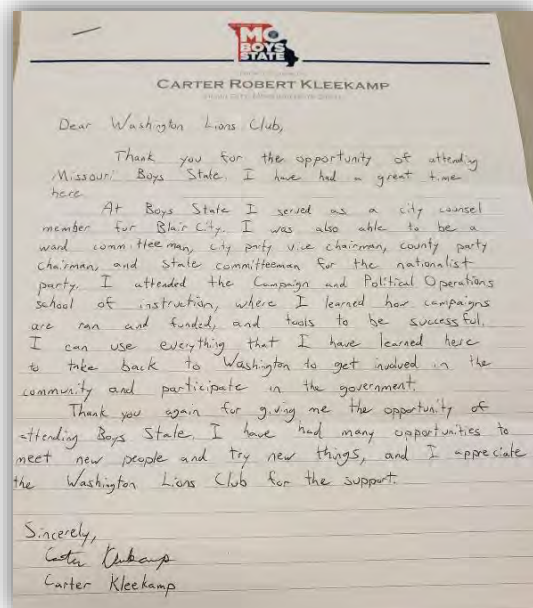 MO
BOYS
STATE
CARTER ROBERT KLEEKAMP
Dear Washington Lions Club,
Thank you for the opportunity of attending
Missouri Boys State. I have had a great time
here.
At Boys State I served as a city counsel
member for Blair City. I was also able to be a
ward committeeman, city party vice chairman, county party
chairman, and state committeeman for the nationalist
party. I attended the Campaign and Political Operations
school of instruction, where I learned how campaigns
are ran and funded, and tools to be successful.
I can use everything that I have learned here
to take back to Washington to get involved in the
community and participate in the government.
Thank you again for giving me the opportunity of
attending Boys State. I have had many opportunities to
meet new people and try new things, and I appreciate
the Washington Lions Club for the support.
Sincerely,
Carter Kleekamp
Carter Kleekamp